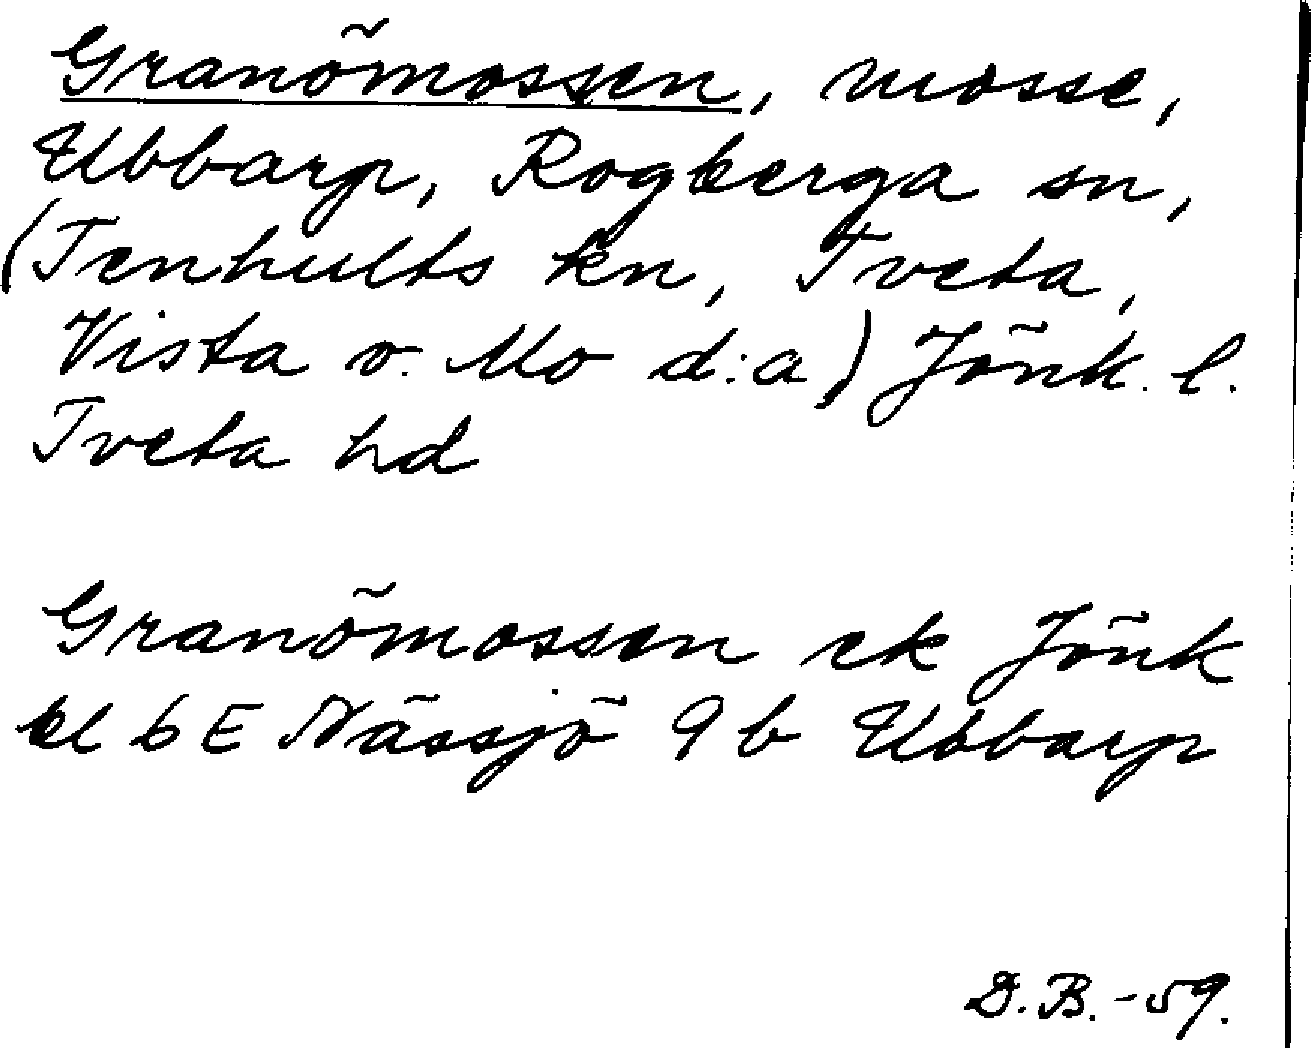 Granömossen, mosse,
Ubbarp, Rogberga sn,
(Tenhults kn, Tveta,
Vista o. Mo d:a) Jönk. l.
Tveta hd
Granömossen ek Jönk
bl 6E Nässjö 9 b Ubbarp
D.B.-59.